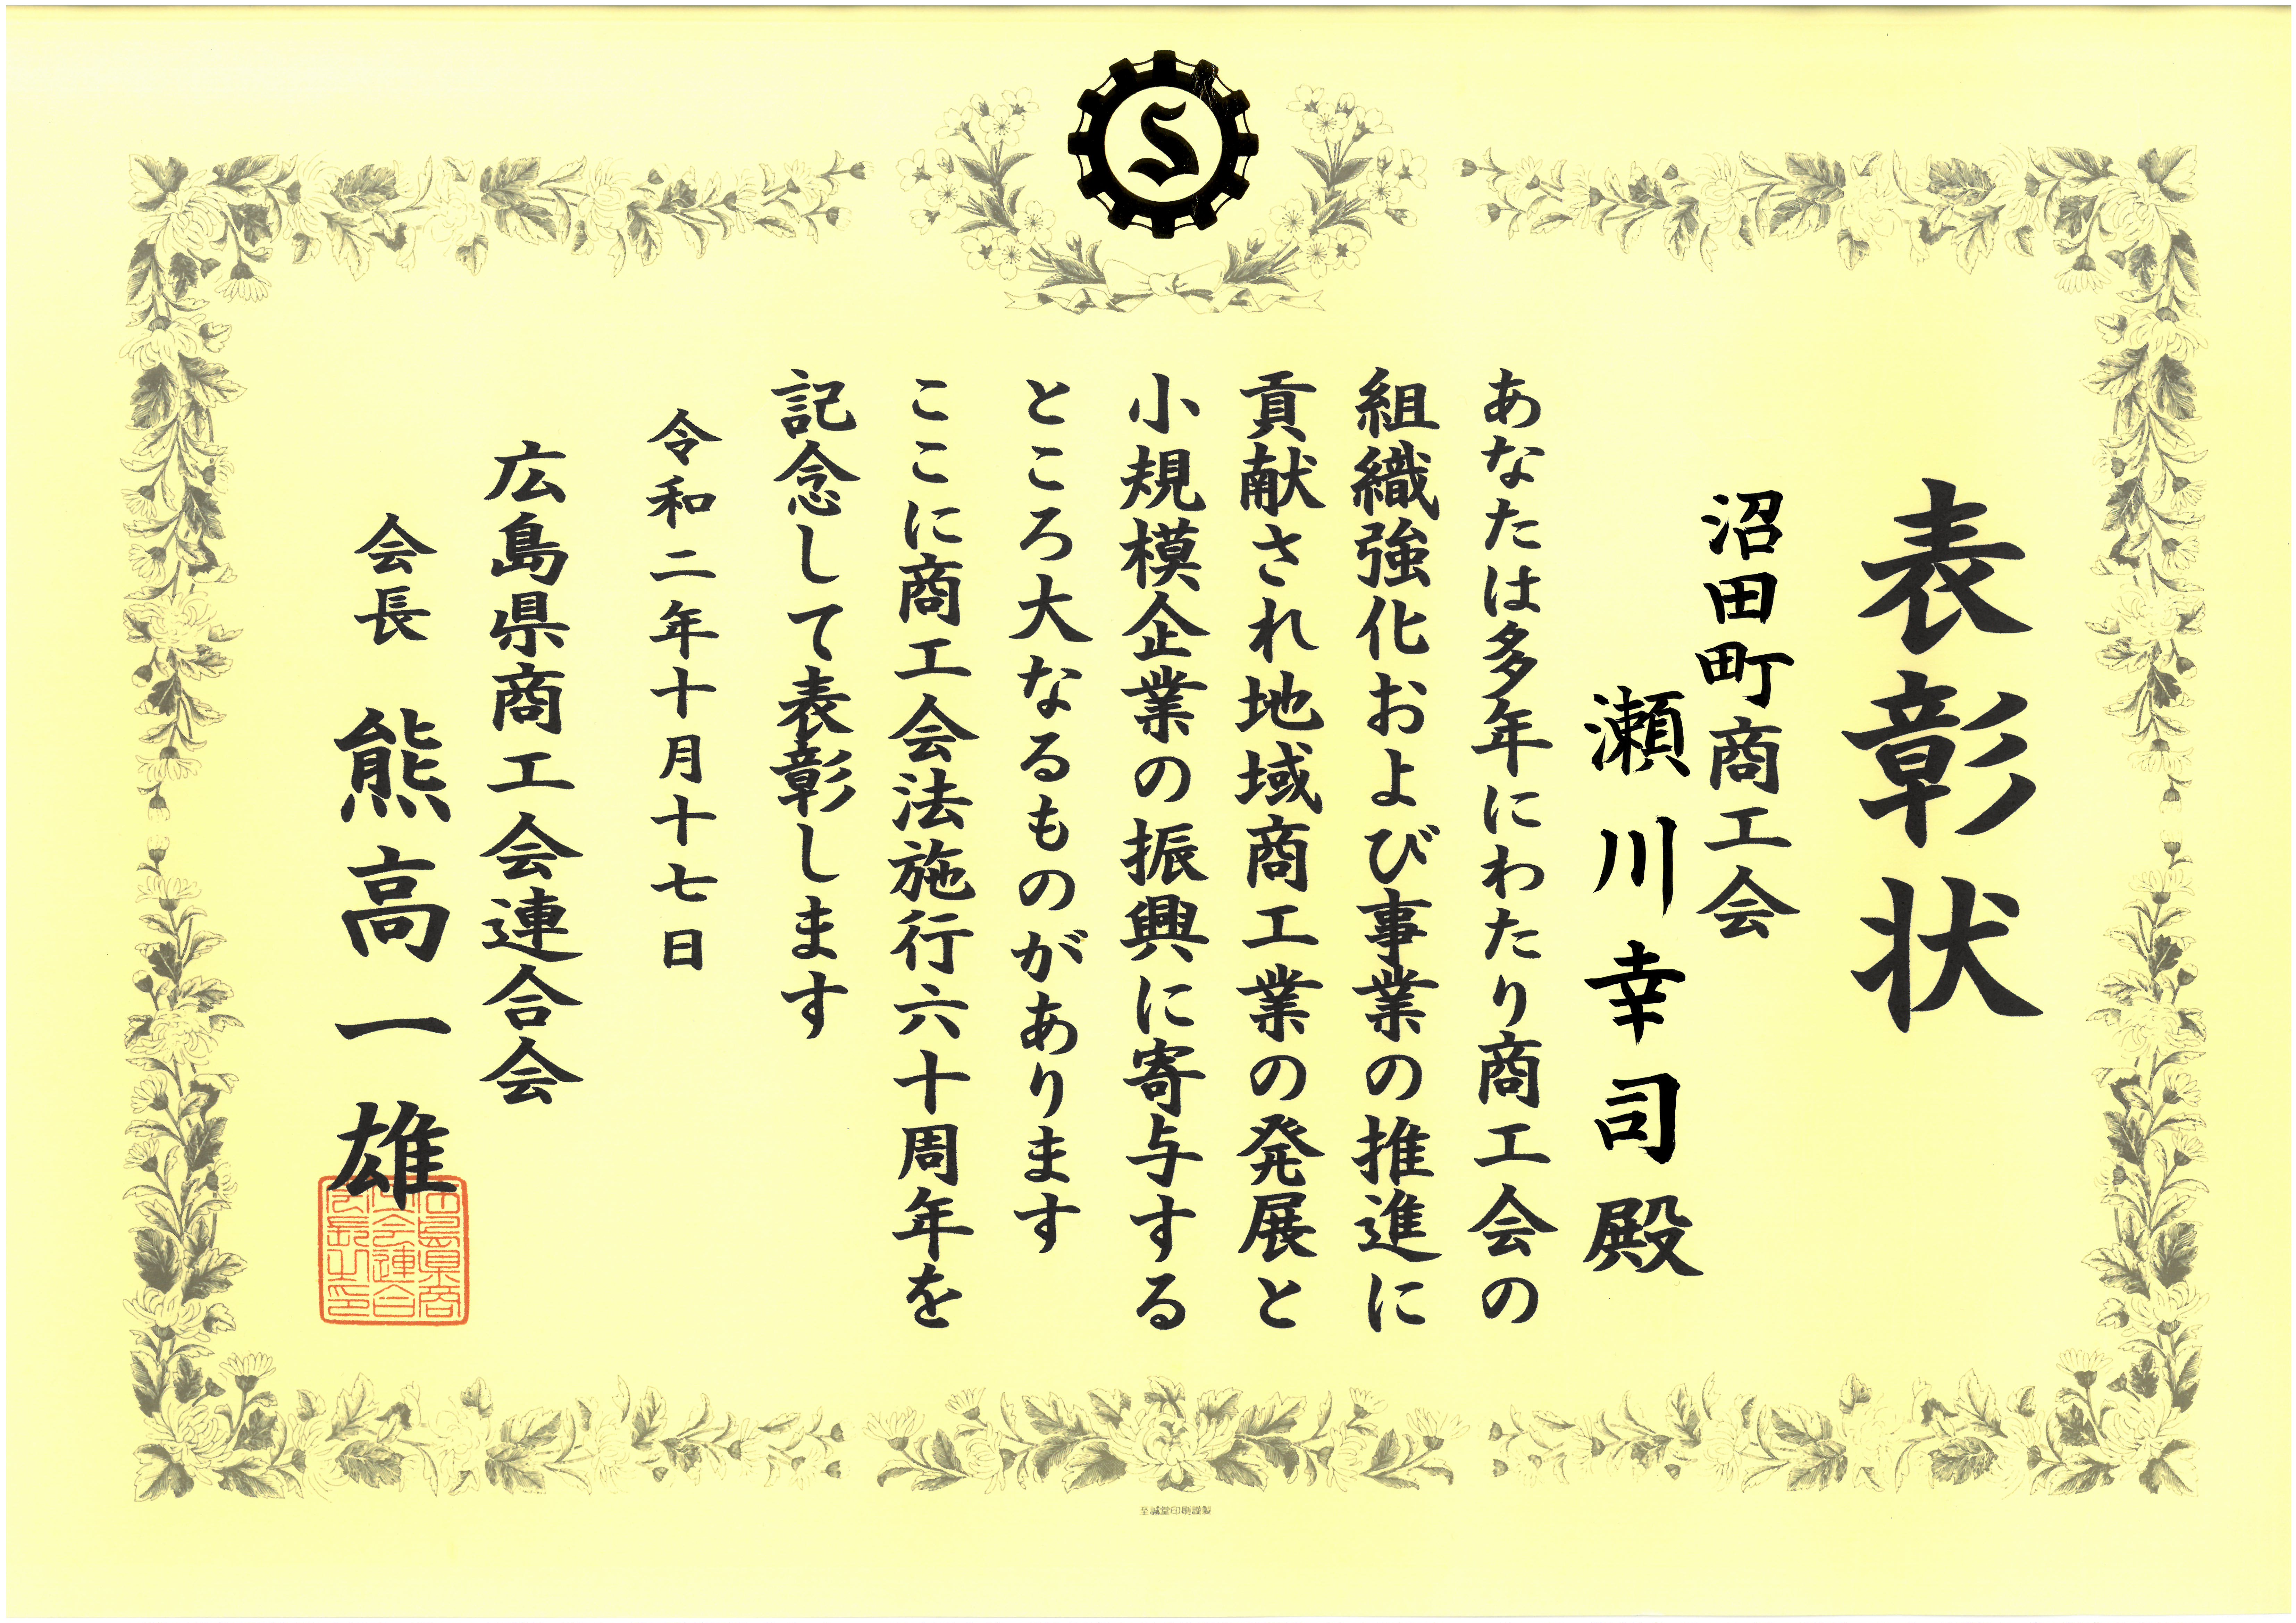 表彰状
沼田町商工会
瀬川幸司殿
あなたは多年にわたり商工会の
組織強化および事業の推進に
貢献され地域商工業の発展と
小規模企業の振興に寄与する
ところ大なるものがあります
ここに商工会法施行六十周年を
記念して表彰します
令和二年十月十七日
広島県商工会連合会
会長 熊高一雄
広島県商工会連合会長之印
S
至誠堂印刷謹製